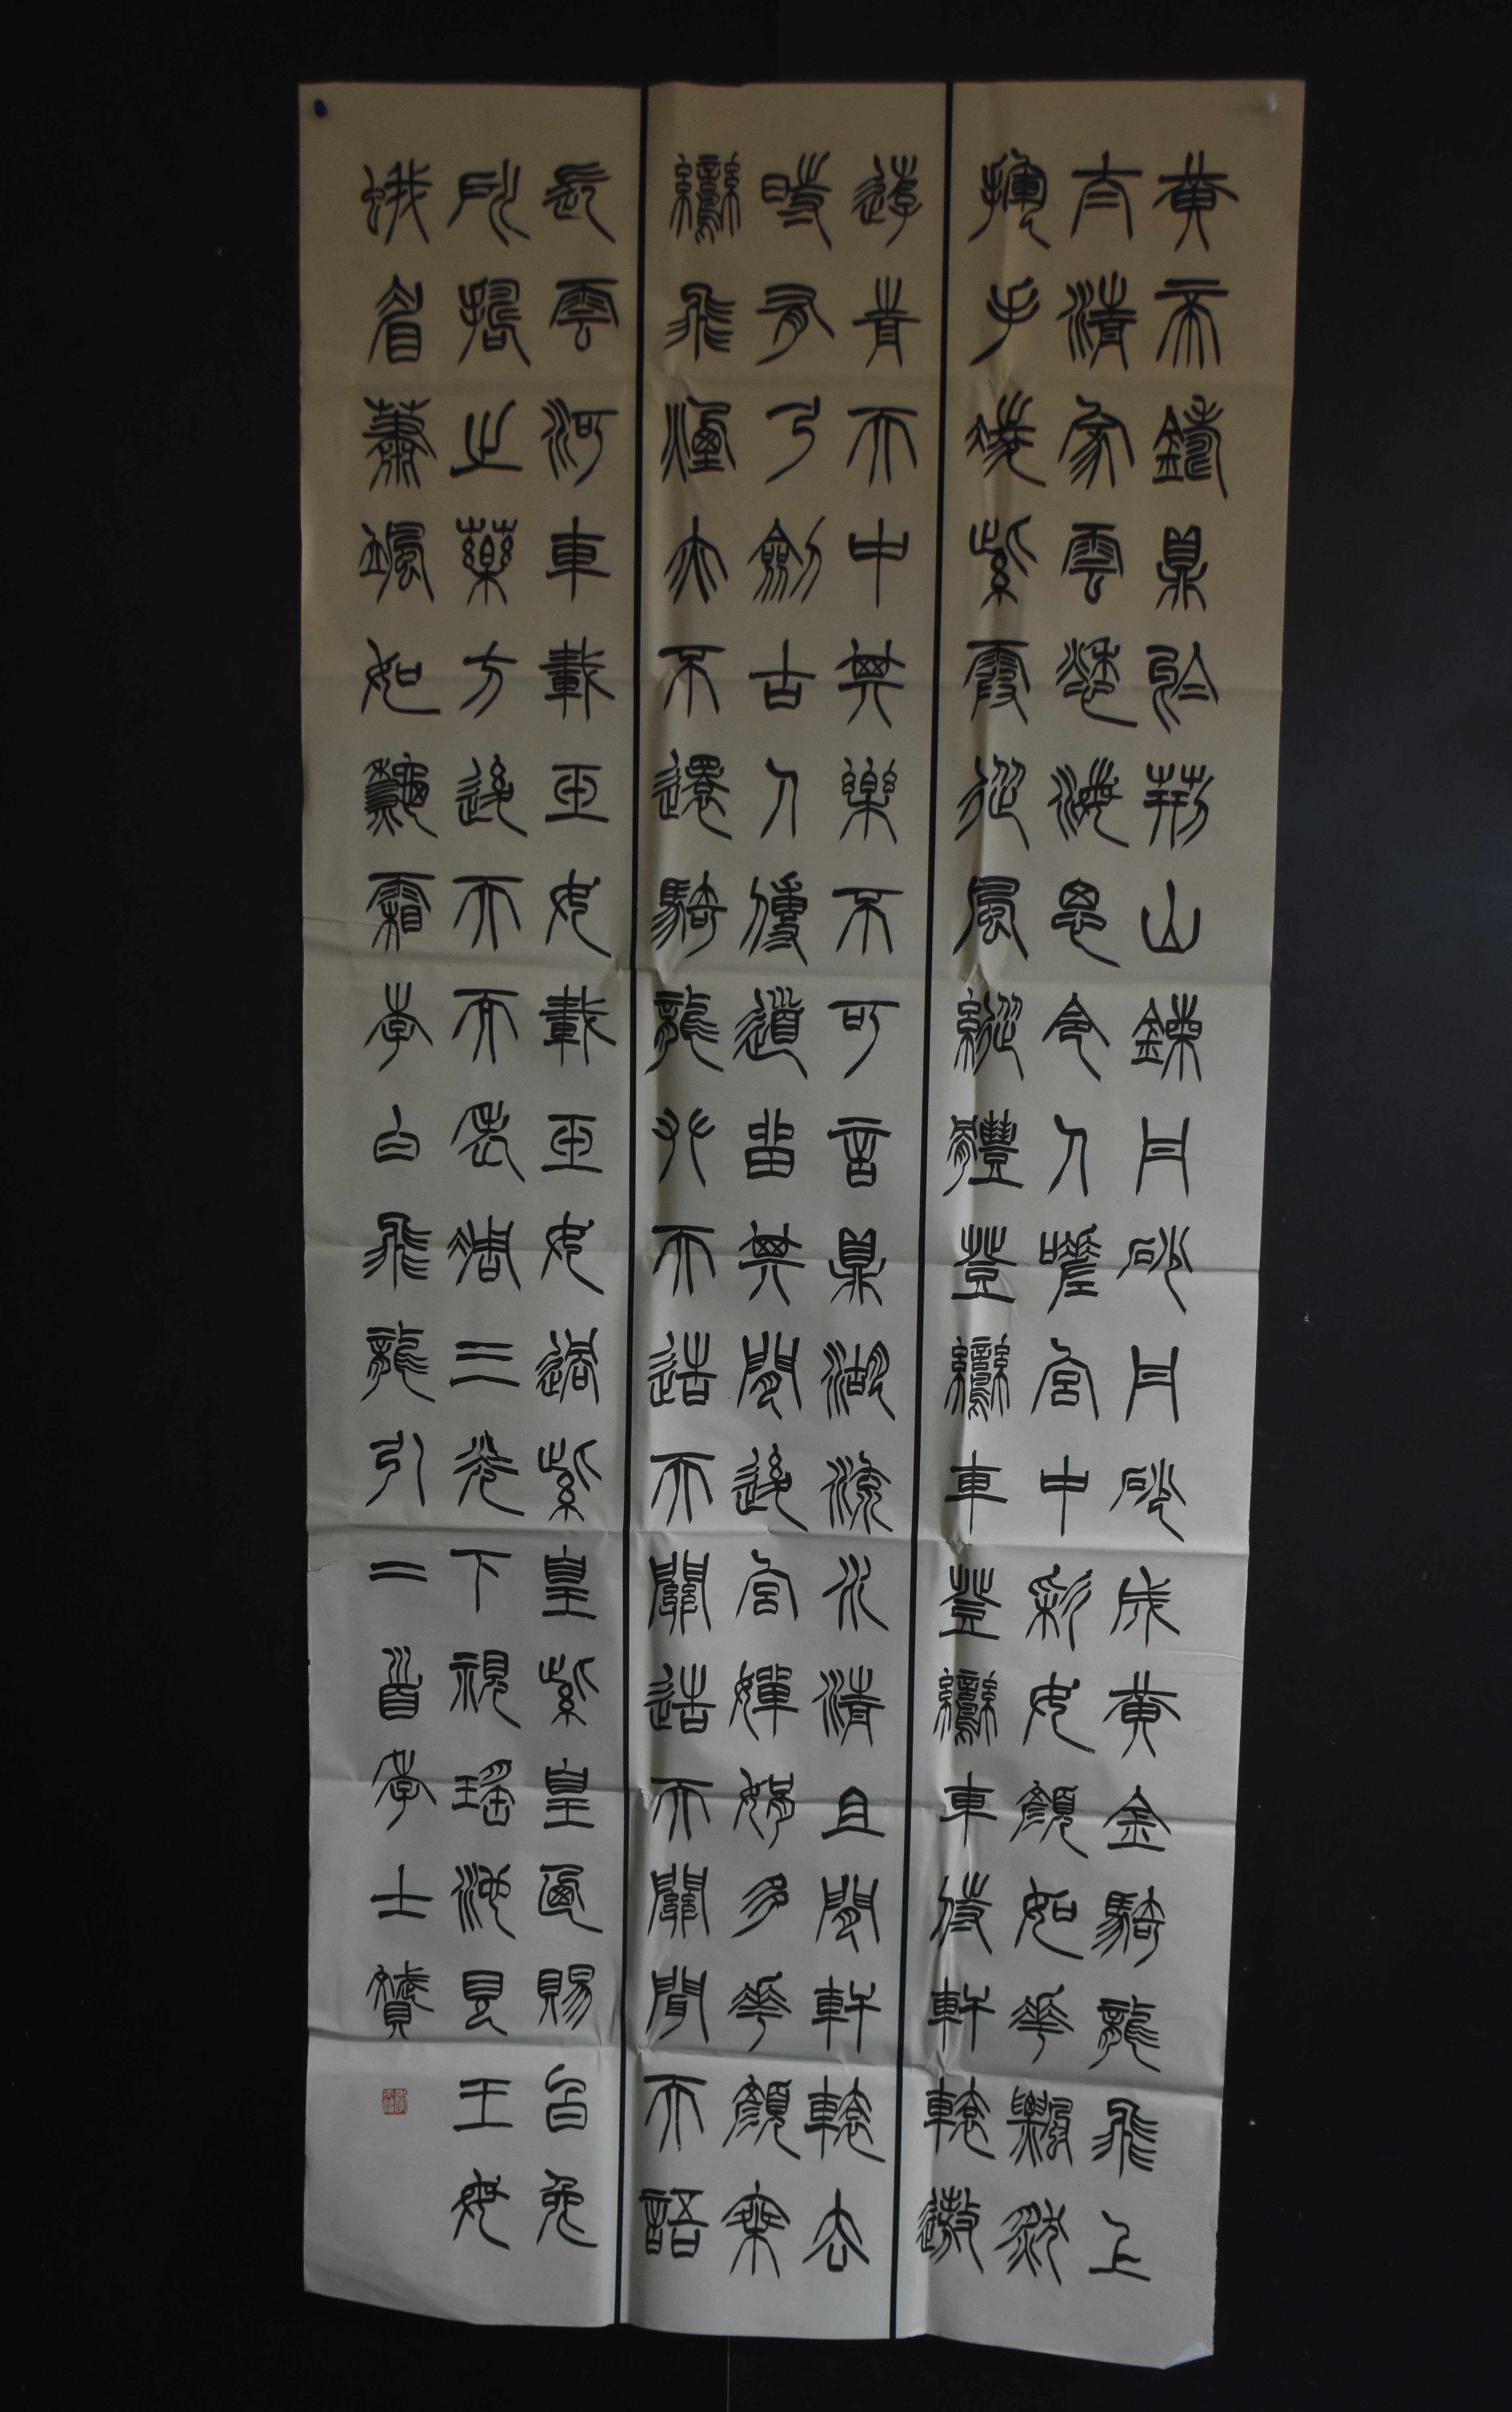 黃帝鑄鼎於荊山鍊丹砂丹砂成黃金騎龍飛上
太清家雲愁海思令人嗟宮中彩女顏如花飄然
揮手凌紫霞從風縱體登鸞車登鸞車侍軒轅遨
遊青天中其樂不可言鼎湖流水清且閒軒轅去
時有弓劍古人傳道留其間後宮嬋娟多花顏乘
鸞飛煙亦不還騎龍攀天造天關造天關聞天語
長雲河車載玉女載玉女過紫皇紫皇乃賜白兔
所搗之藥方後天而老凋三光下視瑤池見王母
蛾眉蕭颯如秋霜李白飛龍引二首士